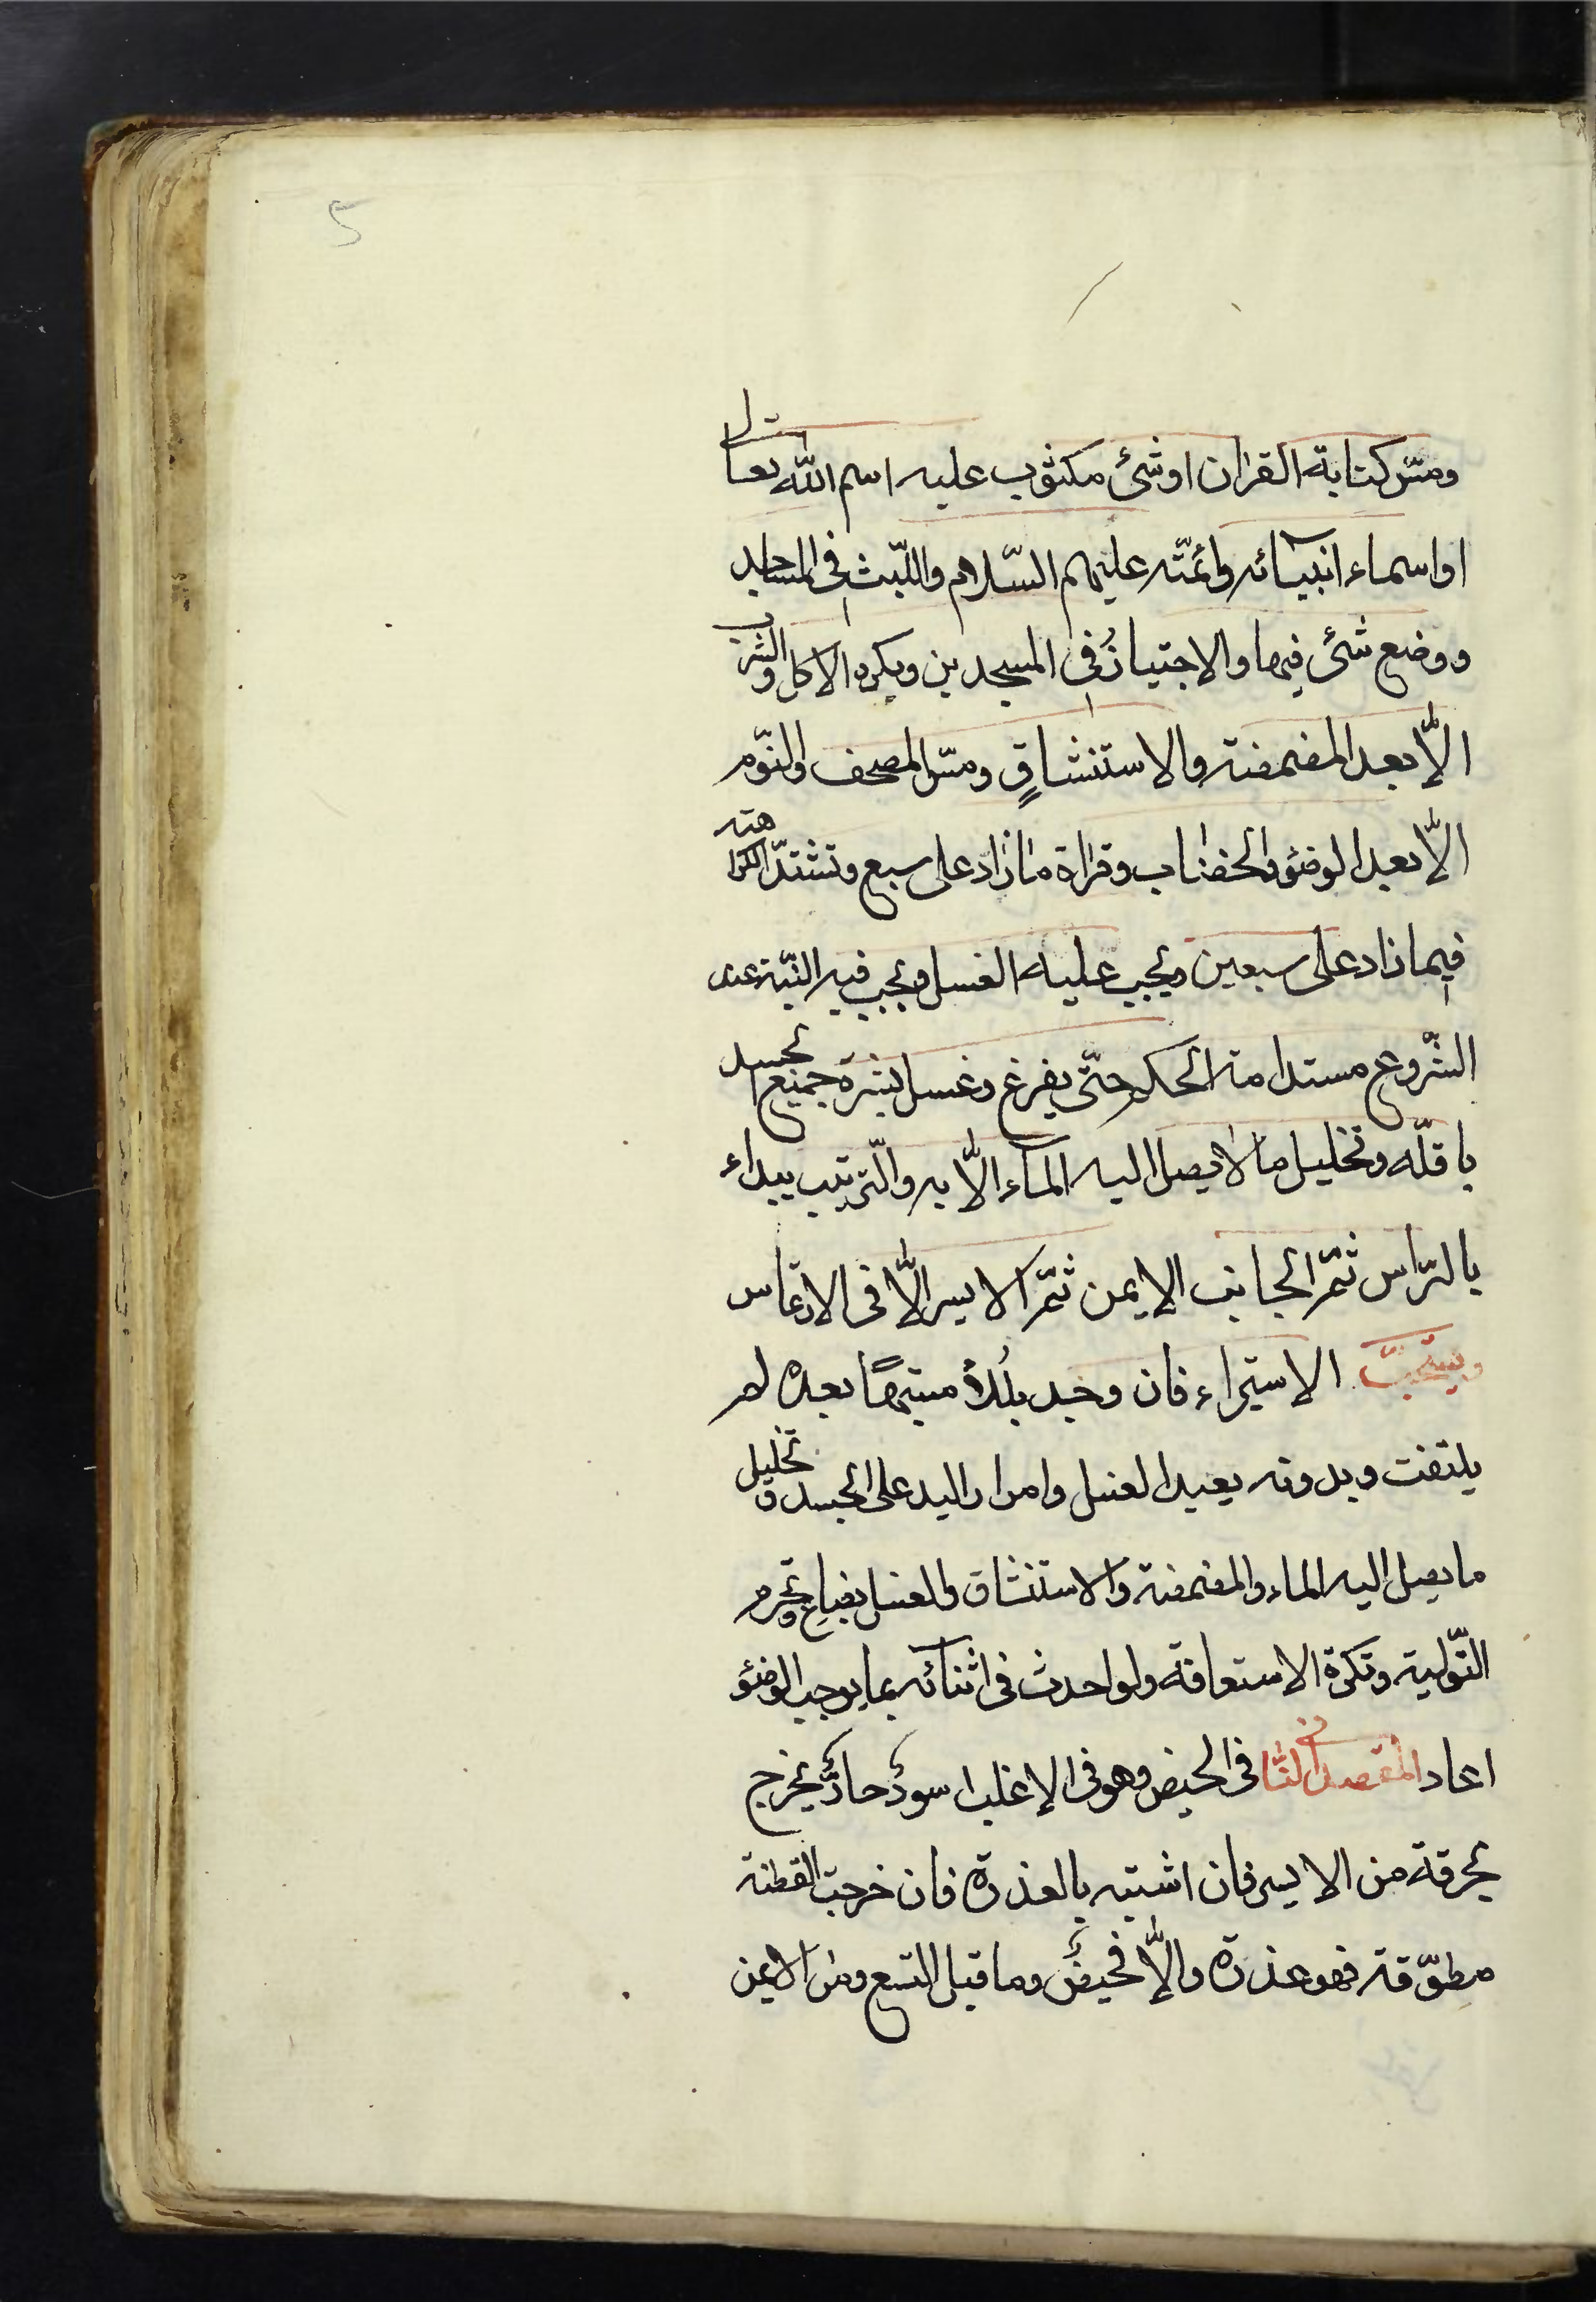 5
ومسّ كتابة القران او شئ مكتوب عليه اسم الله تعالى
او اسماء انبيائه وائمّته عليهم السّلام واللّبث فى المساجد
ووضع شئ فيها والاجتياز فى المسجدين ويكره الاكل والشرب
الّا بعد المضمضة والاستنشاق ومسّ المصحف والنّوم
الّا بعد الوضوء والخضاب وقراة ما زاد على سبع وتشتدّ الكراهته
فيما زاد على سبعين ويجب عليه الغسل ويجب فيه النّيّة عند
الشّروع مستدامة الحكم حتّى يفرغ وغسل بشرة جميع الجسد
باقلّه وتخليل ما لا يصل اليه الماء الّا به والتّرتيب يبداء
بالرّاس ثمّ الجانب الايمن ثمّ الايسر الّا فى الارتماس
ويستحبّ الاستبراء فان وجد بللاً مشتبهًا بعده لم
يلتفت وبدونه يعيد الغسل وامرار اليد على الجسد وتخليل
ما يصل اليه الماء والمضمضة والاستنشاق والغسل بصاع وتحرم
التّولية وتكره الاستعانة ولو احدث فى اثنائه بما يوجب الوضوء
اعاد المقصد الثانى فى الحيض وهو فى الاغلب اسود حارّ يخرج
بحرقة من الايسر فان اشتبه بالعذرة فان خرجت القطنة
مطوّقة فهو عذرة والّا فحيض وما قبل التسع ومن الايمن